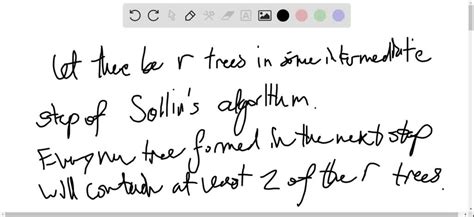 Let there be r trees in some intermediate
step of Sollin's algorithm.
Every new tree formed in the next step
will contain at least 2 of the r trees.